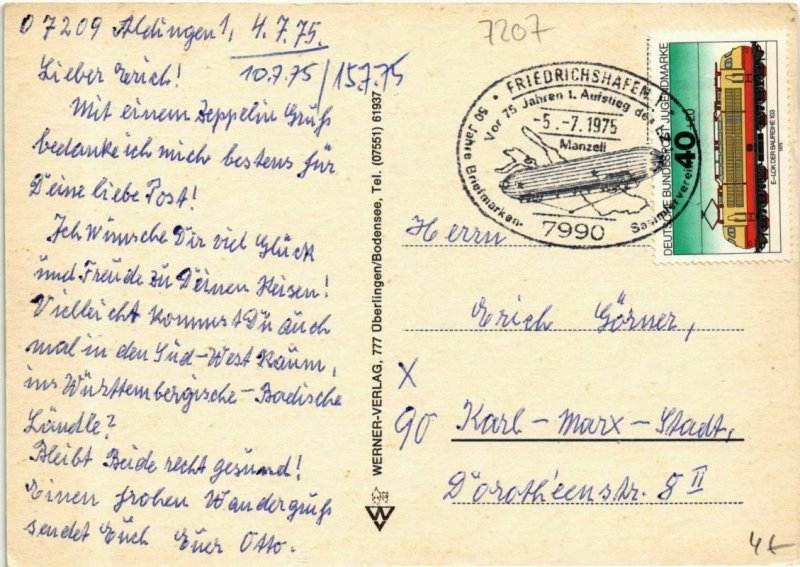 D 7209 Aldingen 1, 4.7.75.
Lieber Erich! 10.7.75/15.7.75
Mit einem Zeppelin Gruß
bedanke ich mich bestens für
Deine liebe Post!
Ich wünsche Dir viel Glück
und Freude zu Deinen Reisen!
Vielleicht kommst Du auch
mal in den Süd-West Raum,
ins Württembergische-Badische
Ländle?
Bleibt Beide recht gesund!
Einen frohen Wandergruß
sendet Euch Euer Otto.
WERNER-VERLAG, 777 Überlingen/Bodensee, Tel. (07551) 61937
W
7207
FRIEDRICHSHAFEN 1
Vor 75 Jahren 1. Aufstieg des
-5.-7.1975
Manzell
50 Jahre Briefmarken-
Sammlerverein
7990
DEUTSCHE BUNDESPOST JUGENDMARKE
40
E-LOK DER BAUREIHE 103
1975
Herrn
Erich Görner,
X
90 Karl-Marx-Stadt,
Dorotheenstr. 8 II
4€